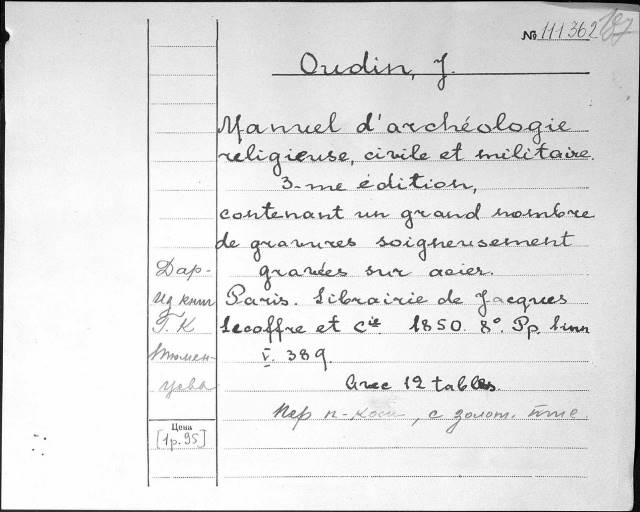 № 111362
Oudin, J.
Manuel d'archéologie
religieuse, civile et militaire.
3-me édition,
contenant un grand nombre
de gravures soigneusement
gravées sur acier.
Paris. Librairie de Jacques
Lecoffre et Cie 1850. 8°. Pp.
V. 389.
Avec 12 tables.
Пер п-кож , с золот. тис.
Дар-
Из книг
Г. К
Тюмен-
цева
Цена
[1р.95]